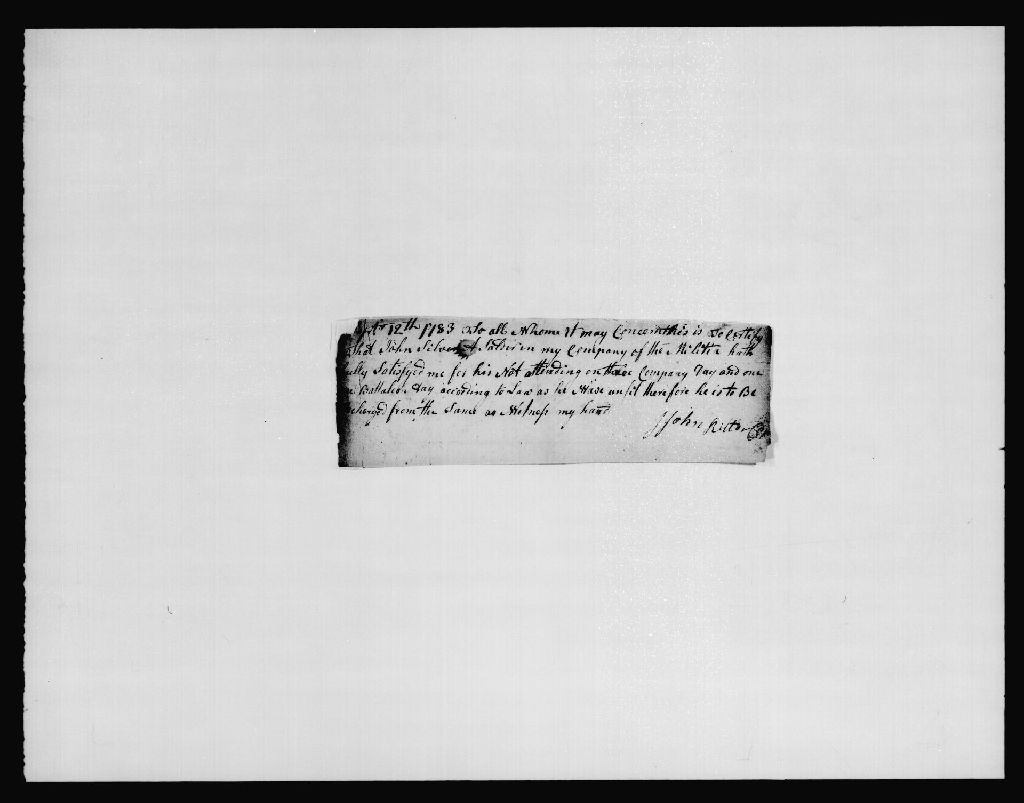 12th 1783 To all Whome it may Concern this is to Certify
that John Silver A Soldier in my Company of the Militia hath
fully Satisfyed me for his Not attending on three Company Day and one
Battalion Day according to Law as Like Wise un fit therefore he is to Be
charged from the Same as Witness my hand
John Ritter